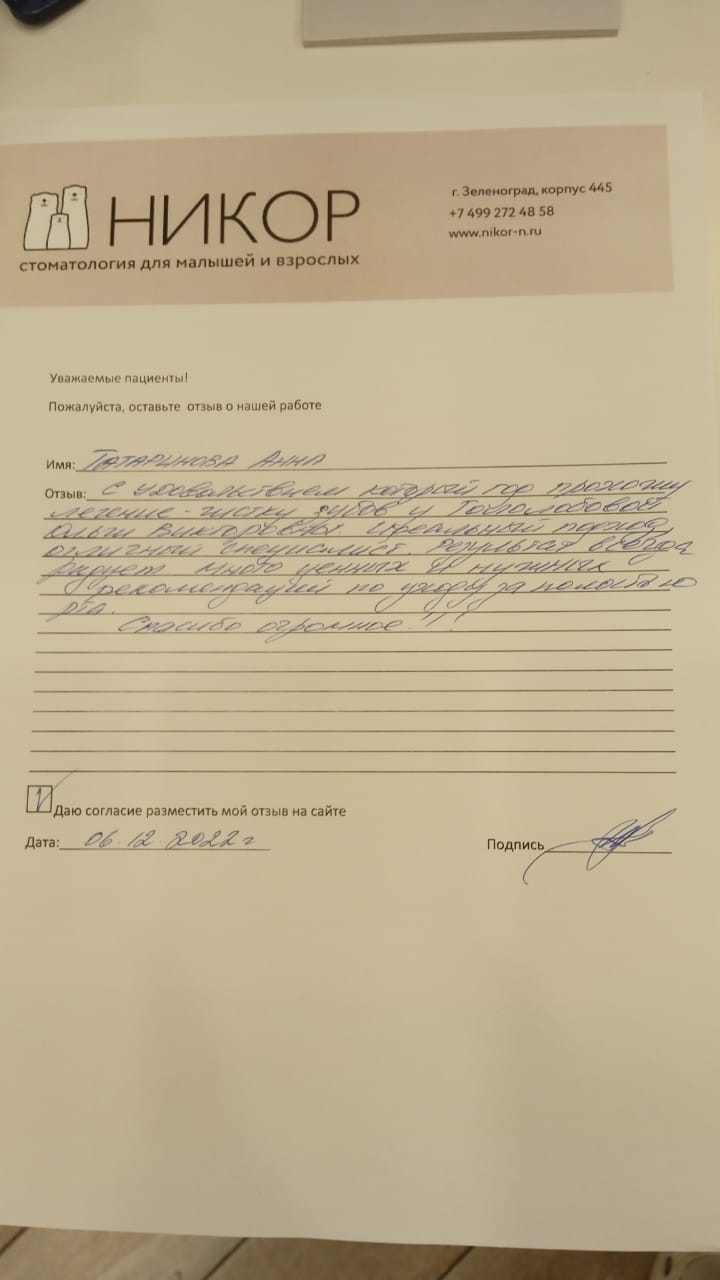 НИКОР
стоматология для малышей и взрослых
г. Зеленоград, корпус 445
+7 499 272 48 58
www.nikor-n.ru
Уважаемые пациенты!
Пожалуйста, оставьте отзыв о нашей работе
Имя: Татаринова Анна
Отзыв: С удовольствием который год прохожу
лечение-чистку зубов у
Ольги Викторовны. Идеальный подход,
отличный специалист. Результат всегда
радует. Много ценных и нужных
рекомендаций по уходу за полостью
рта.
Спасибо огромное!!!
Даю согласие разместить мой отзыв на сайте
Дата: 06.12.2022г
Подпись